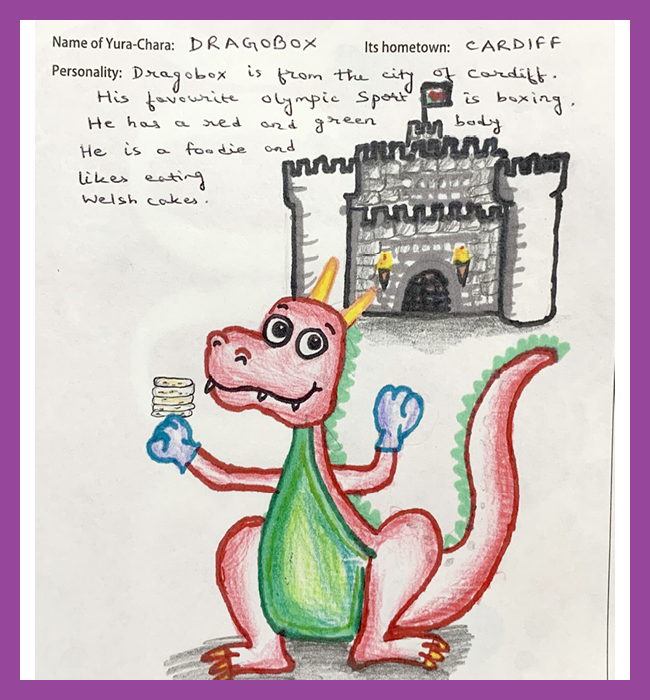 Name of Yura-Chara: DRAGOBOX Its hometown: CARDIFF
Personality: Dragobox is from the city of Cardiff.
His favourite olympic Sport is boxing.
He has a red and green body
He is a foodie and
likes eating
Welsh cakes.